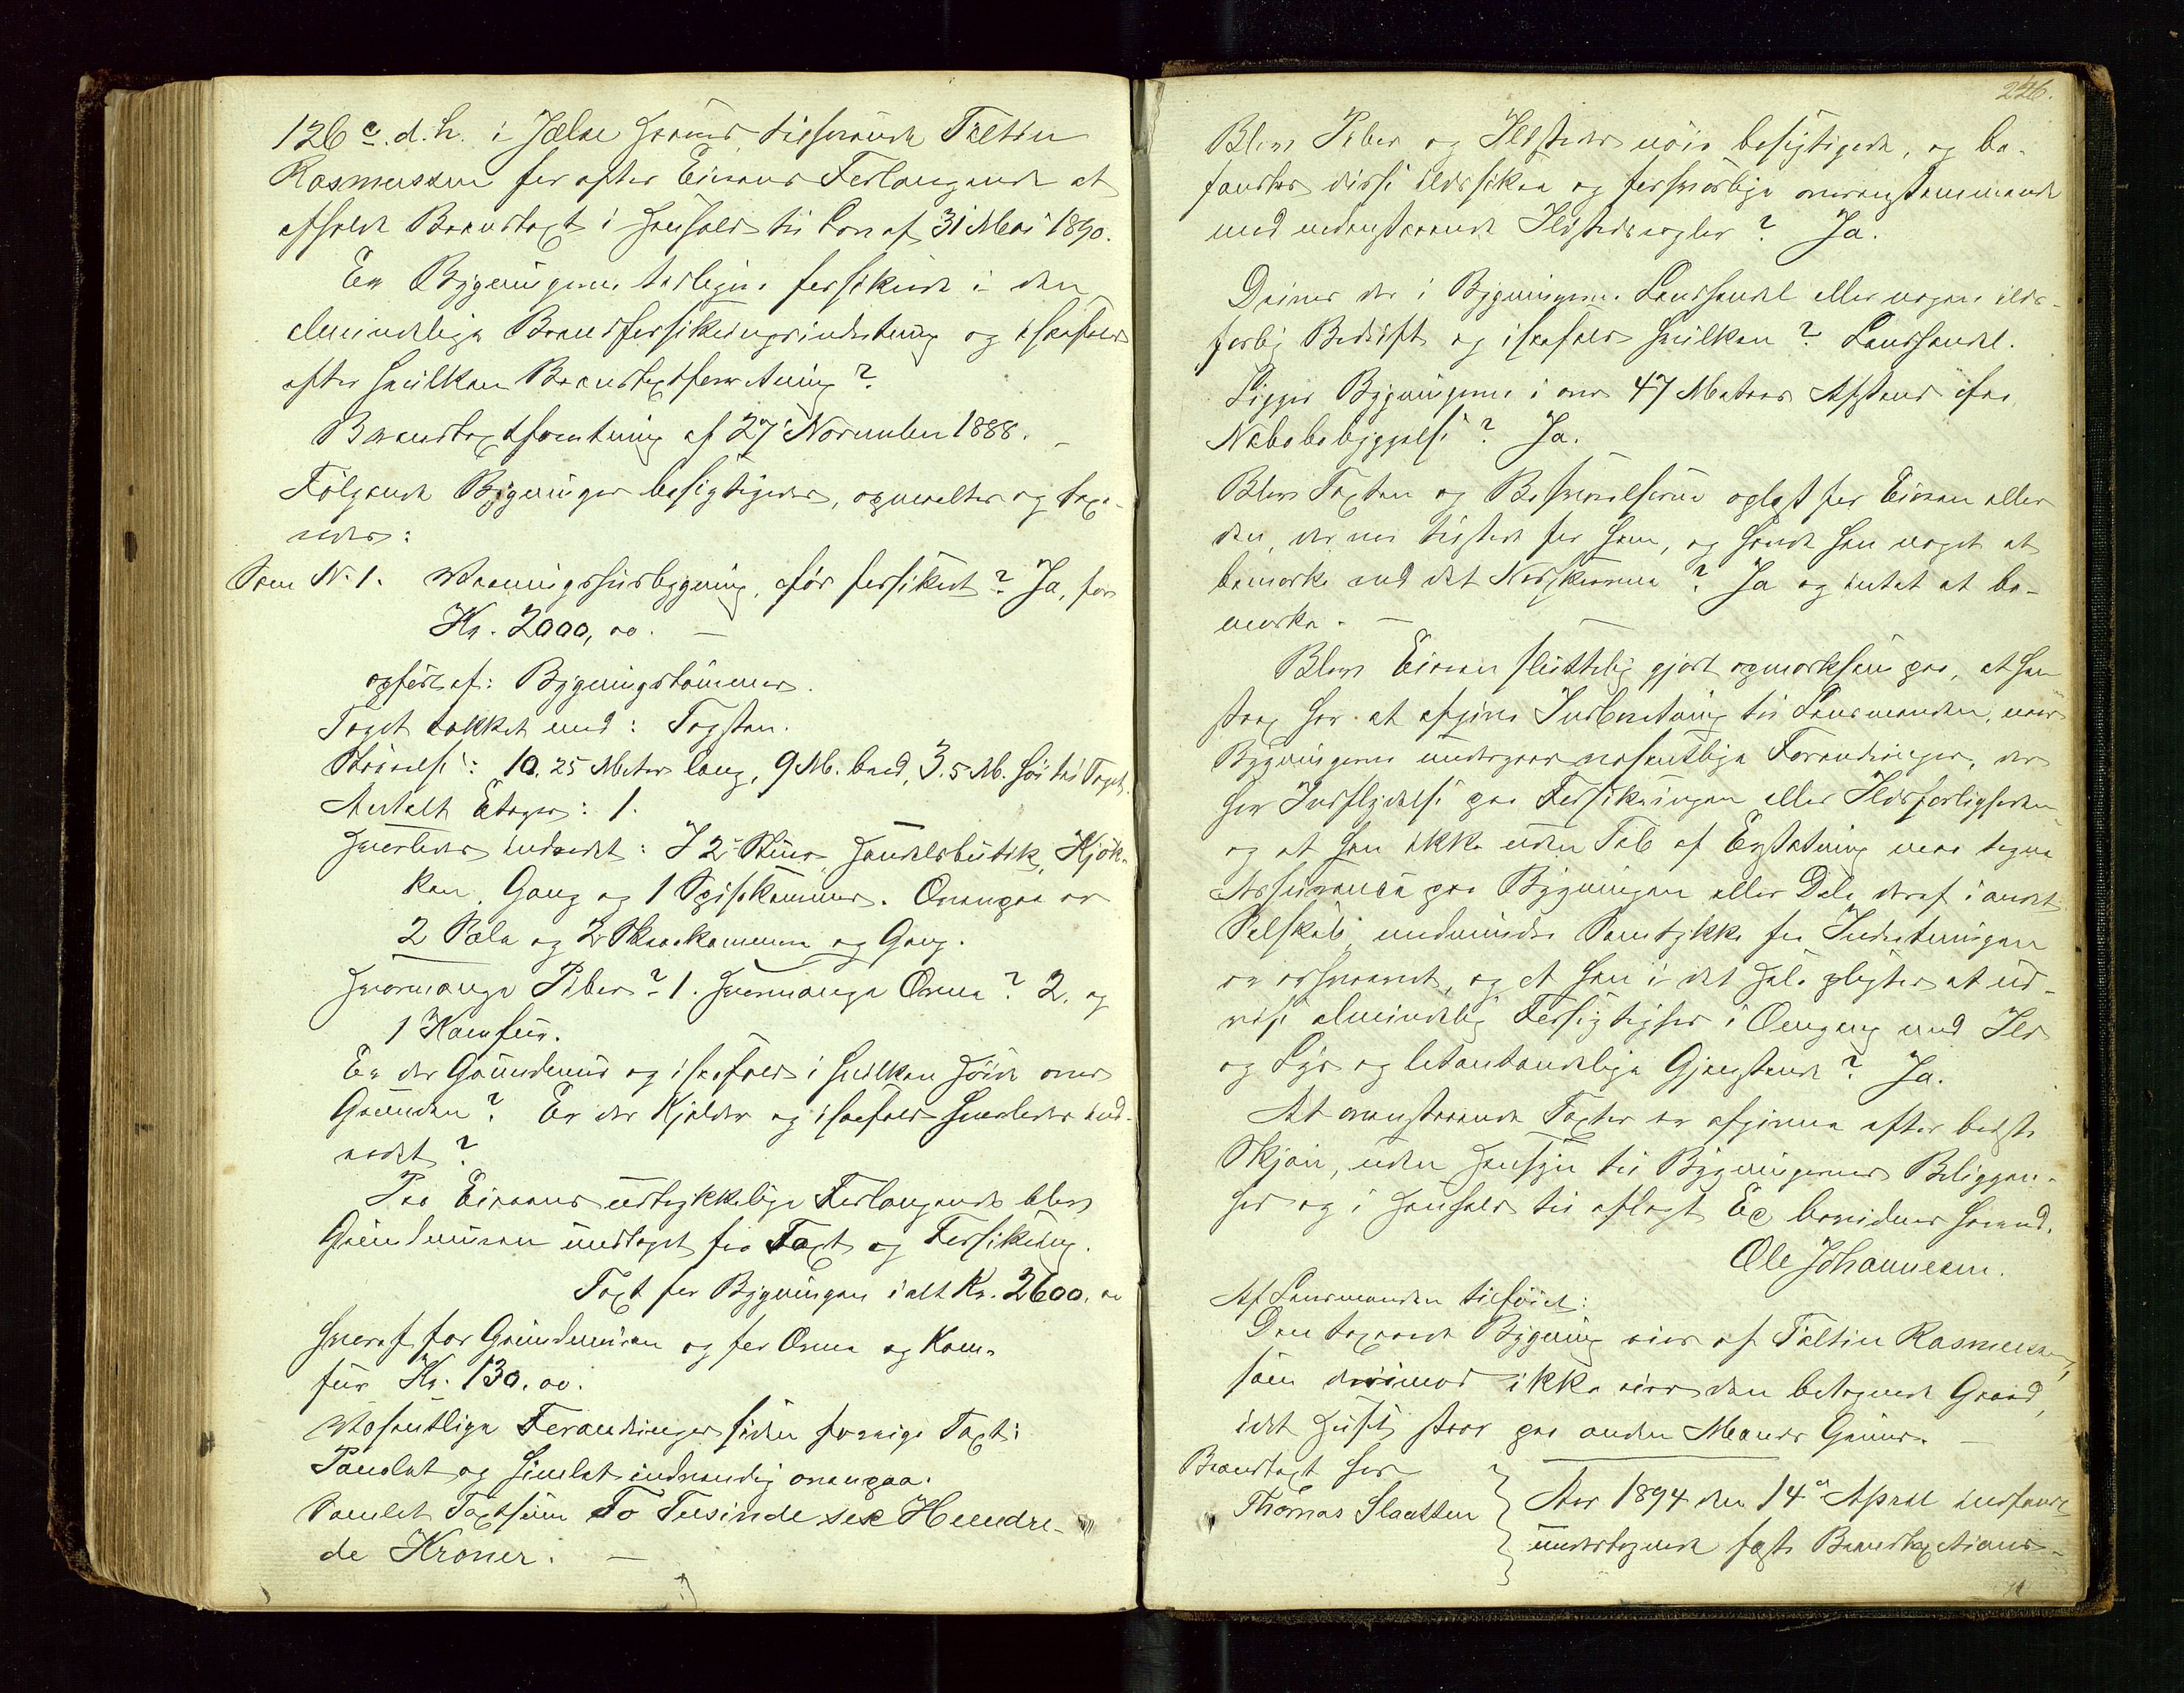 126 c. d. h. i Jelse Herred, tilhørende Tøltin
Rasmussen for efter Eierens Forlangende at
afholde Brandtaxt i Henhold til Lov af 31 Mai 1890.
Er Bygningerne tidligere forsikrede i den
almindelige Brandforsikringsindretning og isaafald
efter hvilken Brandtaxtforretning?
Brandtaxtforretning af 27 November 1888. –
Følgende Bygninger besigtigedes, opmaaltes og taxe-
redes:
Som No 1. Vaaningshusbygning, før forsikret? Ja, for
Kr. 2000,00. –
opført af: Bygningstømmer.
Taget tækket med: Tagsten.
Størrelse: 10.25 Meter lang, 9 M. bred, 3.5 M. høi til Taget.
Antalt Etager: 1.
Hvorledes indredet: I 2 Stuer, Handelsbutik, Kjøk-
ken, Gang og 1 Spisekammer. Ovenpaa er
2 Sale og 2 Skraakammere og Gang.
Hvormange Piber? 1. Hvormange Ovne? 2, og
1 Komfur.
Er der Grundmur og isaafald i hvilken Høide over
Grunden? Er der Kjelder og isaafald hvorledes ind-
redet?
Paa Eierens udtrykkelige Forlangende blev
Grundmuren undtaget fra Taxt og Forsikring.
Taxt for Bygningen ialt Kr. 2600,00
hvoraf for Grundmuren og for Ovne og Kom-
fur Kr. 130.00.
Væsentlige Forandringer siden forrige Taxt:
Panelet og himlet indvendig ovenpaa.
Samlet Taxtsum To Tusinde sex Hundre-
de Kroner. –
226.
Blev Piber og Ildsteder nøie besigtigede, og be-
fandtes disse ildssikre og forsvarlige overensstemmende
med nedenstaaende Ildstedsregler? Ja.
Drives der i Bygningerne Landhandel eller nogen ilds-
farlig Bedrift og isaafald hvilken? Landhandel.
Ligger Bygningerne i over 47 Meters Afstand fra
Nabobebyggelse? Ja.
Blev Taxten og Beskrivelserne oplæst for Eieren eller
den, der var tilstede for ham, og havde han noget at
bemærke ved det Nedskrevne? Ja og intet at be-
mærke. –
Blev Eieren sluttelig gjort opmærksom paa, at han
strax har at afgive Indberetning til Lensmanden, naar
Bygningerne undergaar væsentlige Forandringer, der
har Indflydelse paa Forsikringen eller Ildsfarligheden
og at han ikke uden Tab af Erstatning maa tegne
Assurance paa Bygningen eller Dele deraf i andet
Selskab, medmindre Samtykke fra Indretningen
er erhvervet, og at han i det Hele pligter at ud-
vise almindelig Forsigtighed i Omgang med Ild
og Lys og letantændelige Gjenstande? Ja.
At ovenstaaende Taxter er afgivne efter bedste
Skjøn, uden Hensyn til Bygningernes Beliggen-
hed og i Henhold til aflagt Ed bevidnes herved.
Ole Johannesen.
Af Lensmanden tilføiet:
Den taxerede Bygning eies af Tøltin Rasmussen,
som derimod ikke eier den betegnede Gaard,
idet Huset staar paa anden Mands Grund. –
Brandtaxt hos
Thomas Slaatten
Aar 1894 den 14de April indfandt
undertegnede faste Brandtaxations-